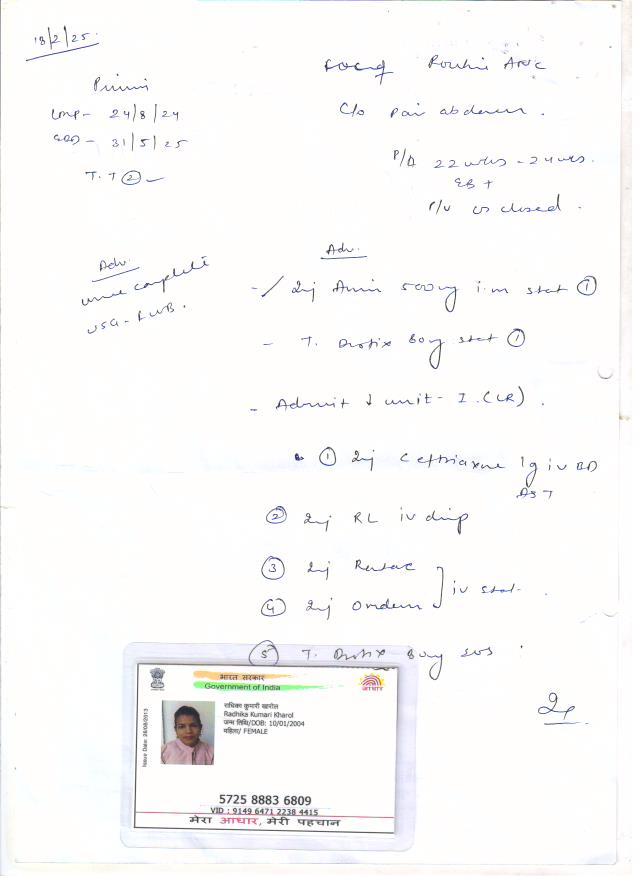 18/2/25.
Primi
LMP- 24/8/24
EDD- 31/5/25
T.T ②
Routine ANC
C/o pain abdomen.
P/A 22 wks - 24 wks.
P/V os closed.
Adv.
urine complete
USG- FWB.
Adv.
- Inj 500mg i.m stat ①
- T. Drotix 80mg stat ①
- Admit ↓ unit- I. (LR).
① Inj Ceftriaxone 1g iv BD
AST
② Inj RL iv drip
③ Inj Rantac
④ Inj Ondem
iv stat.
⑤ T. Drotix 80mg SOS
भारत सरकार
Government of India
राधिका कुमारी खारोल
Radhika Kumari Kharol
जन्म तिथि/DOB: 10/01/2004
महिला/ FEMALE
Issue Date: 28/08/2013
5725 8883 6809
VID : 9149 6471 2238 4415
मेरा आधार, मेरी पहचान